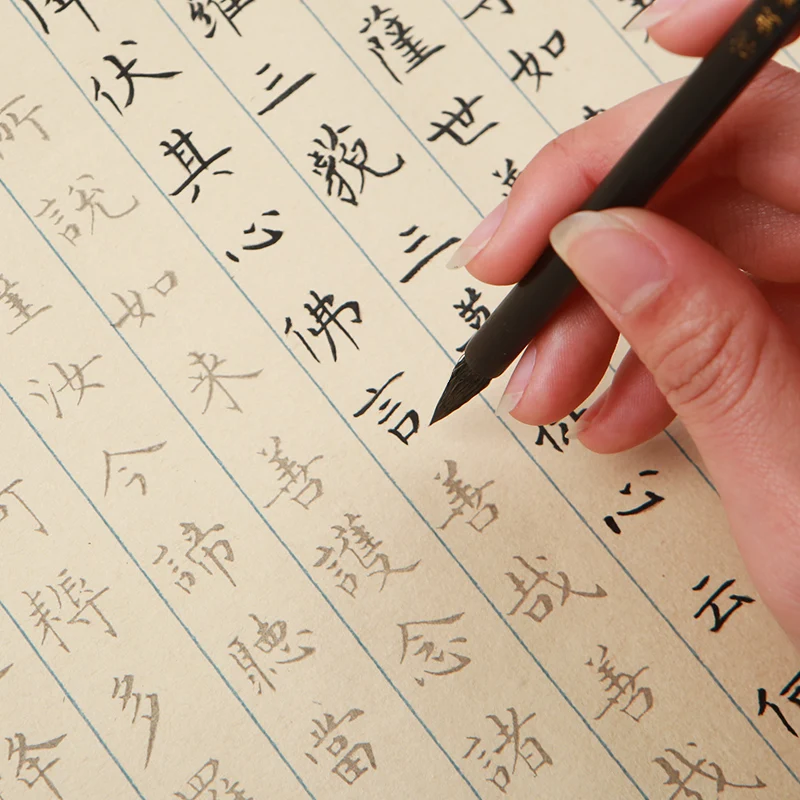 如
薩世
羅三藐三菩心云何
伏其心佛言善哉善哉
所說如來善護念諸
薩汝今諦聽當
阿耨多羅
降